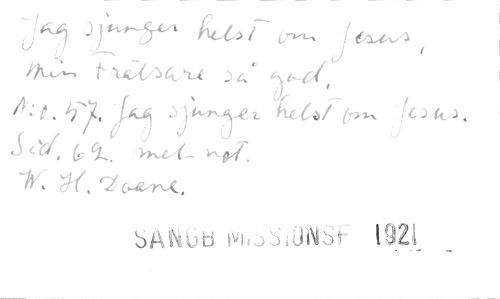 Jag sjunger helst om Jesus,
min Frälsare så god,
N:o. 57. Jag sjunger helst om Jesus.
Sid. 62. mel-not.
W. H. Doane.
SANGB MISSIONSF 1921